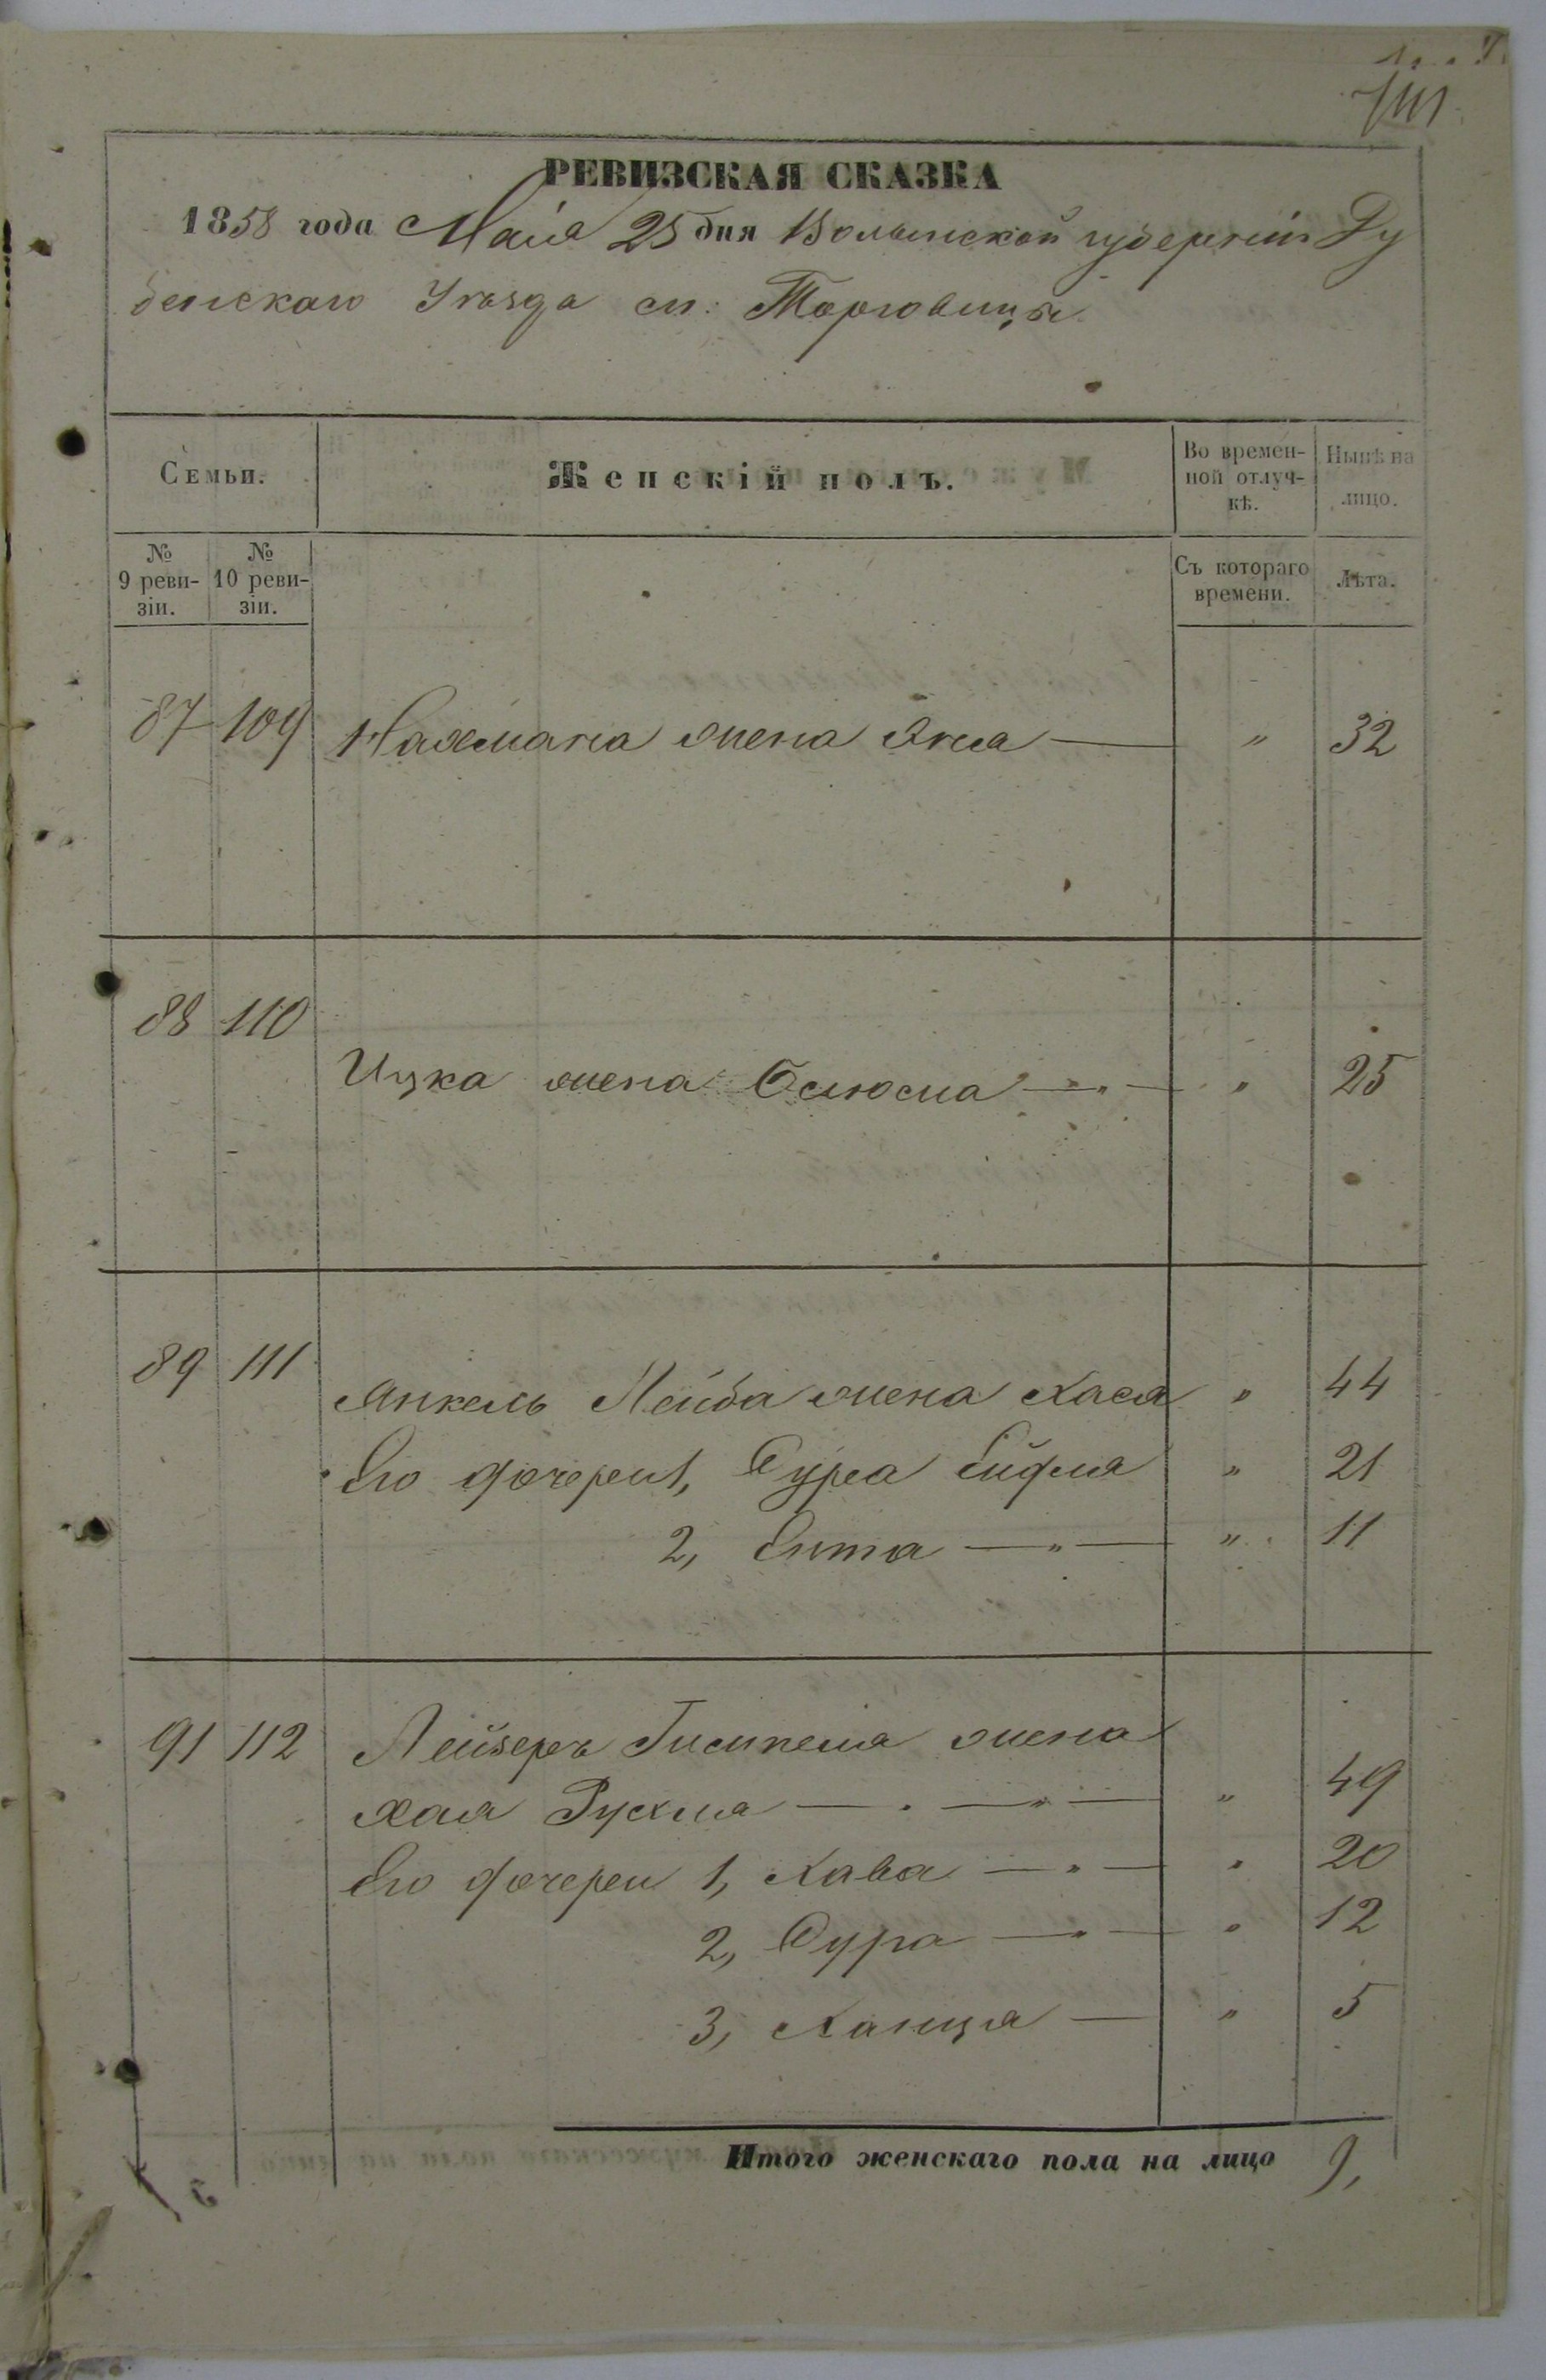 741
РЕВИЗСКАЯ СКАЗКА
1858 года Маія 25 дня Волынской губерніи Ду
бенскаго Уѣзда м: Торговицы
Семьи. Женскій полъ. Во времен-ной отлуч-кѣ. Нынѣ на лицо.
№ 9 реви-зіи. № 10 реви-зіи. Съ котораго времени. Лѣта.
87 109 жена " 32
88 110 Ицка жена " 25
89 111 Янкель Лейба жена Хася " 44
Его дочери 1, Сура Бейля " 21
2, Ента — " — " 11
91 112 Лейзера жена
Хая Рухля — " — " 49
Его дочери 1, Хава — " — " 20
2, Сура — " — " 12
3, Ханця — " 5
Итого женскаго пола на лицо 9,